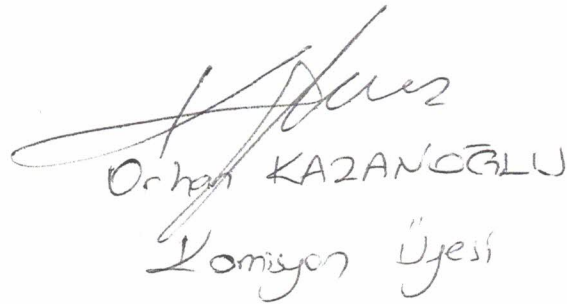 Orhan KAZANOĞLU
Komisyon Üyesi